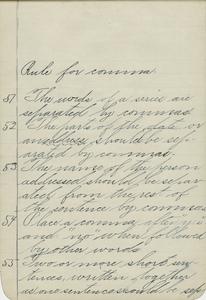 Rule for comma
51 The words of a series are
separated by commas
52 The parts of the date or
address should be sep-
arated by commas.
53 The name of the person
addressed should be separ
ated from the rest of
the sentence by commas
54 Place a comma after yes
and no when followed
by other words
55 Two or more short sen
tences, written together
as one sentence should be sep